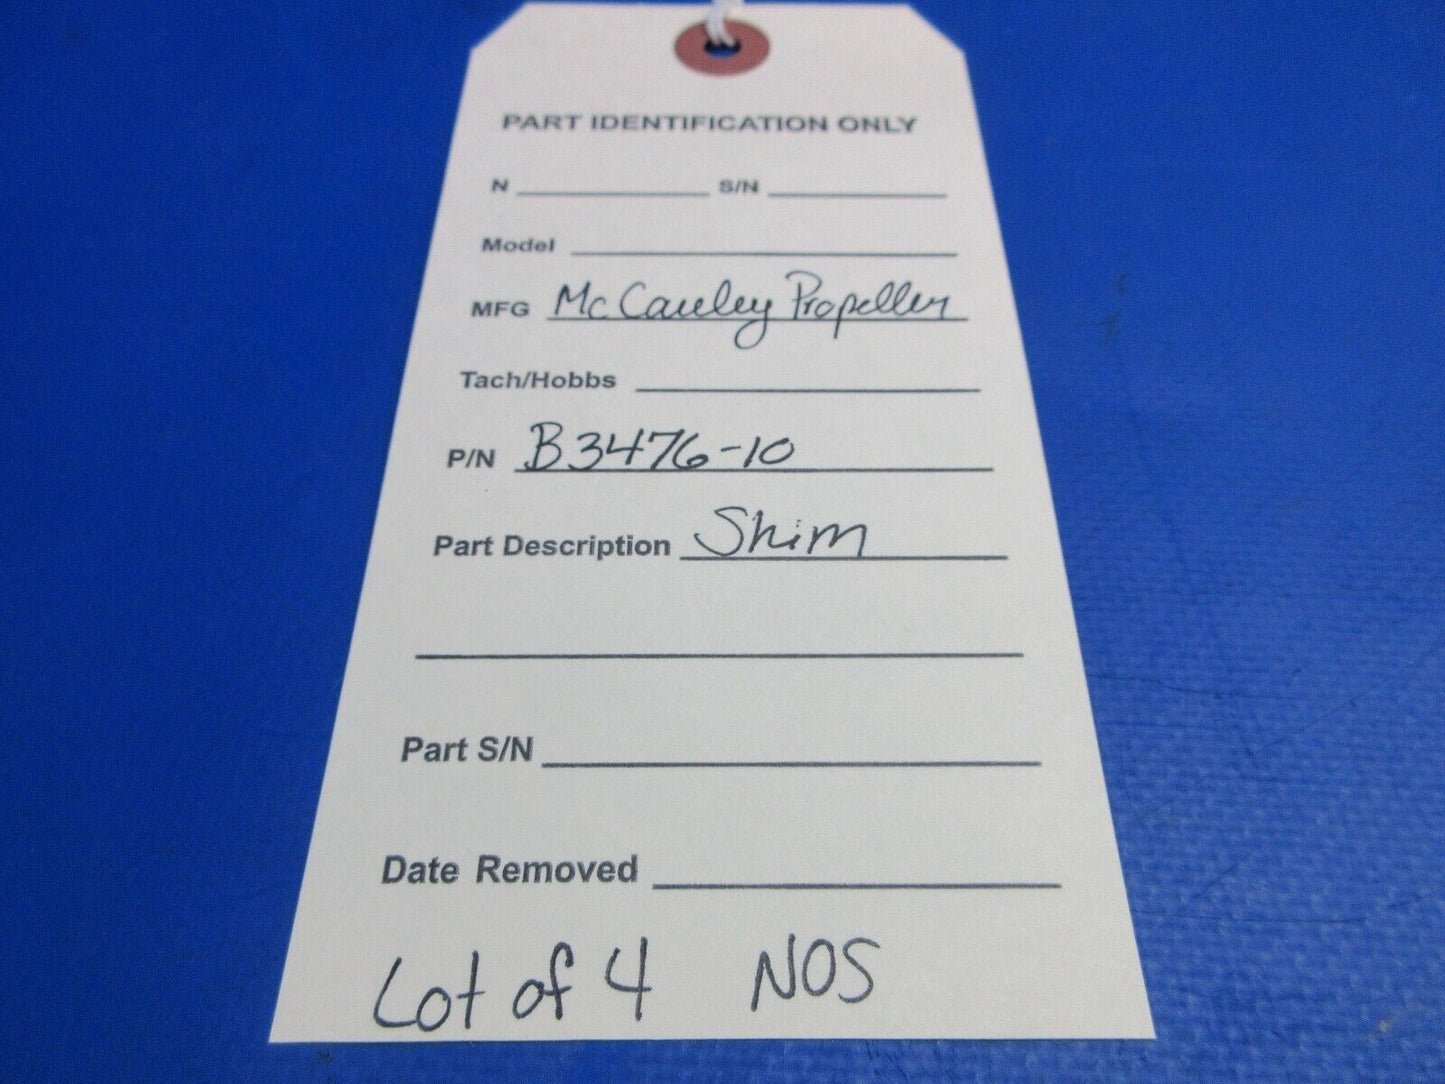 PART IDENTIFICATION ONLY
N S/N
Model
MFG McCauley Propeller
Tach/Hobbs
P/N B3476-10
Part Description Shim
Part S/N
Date Removed
Lot of 4 NOS